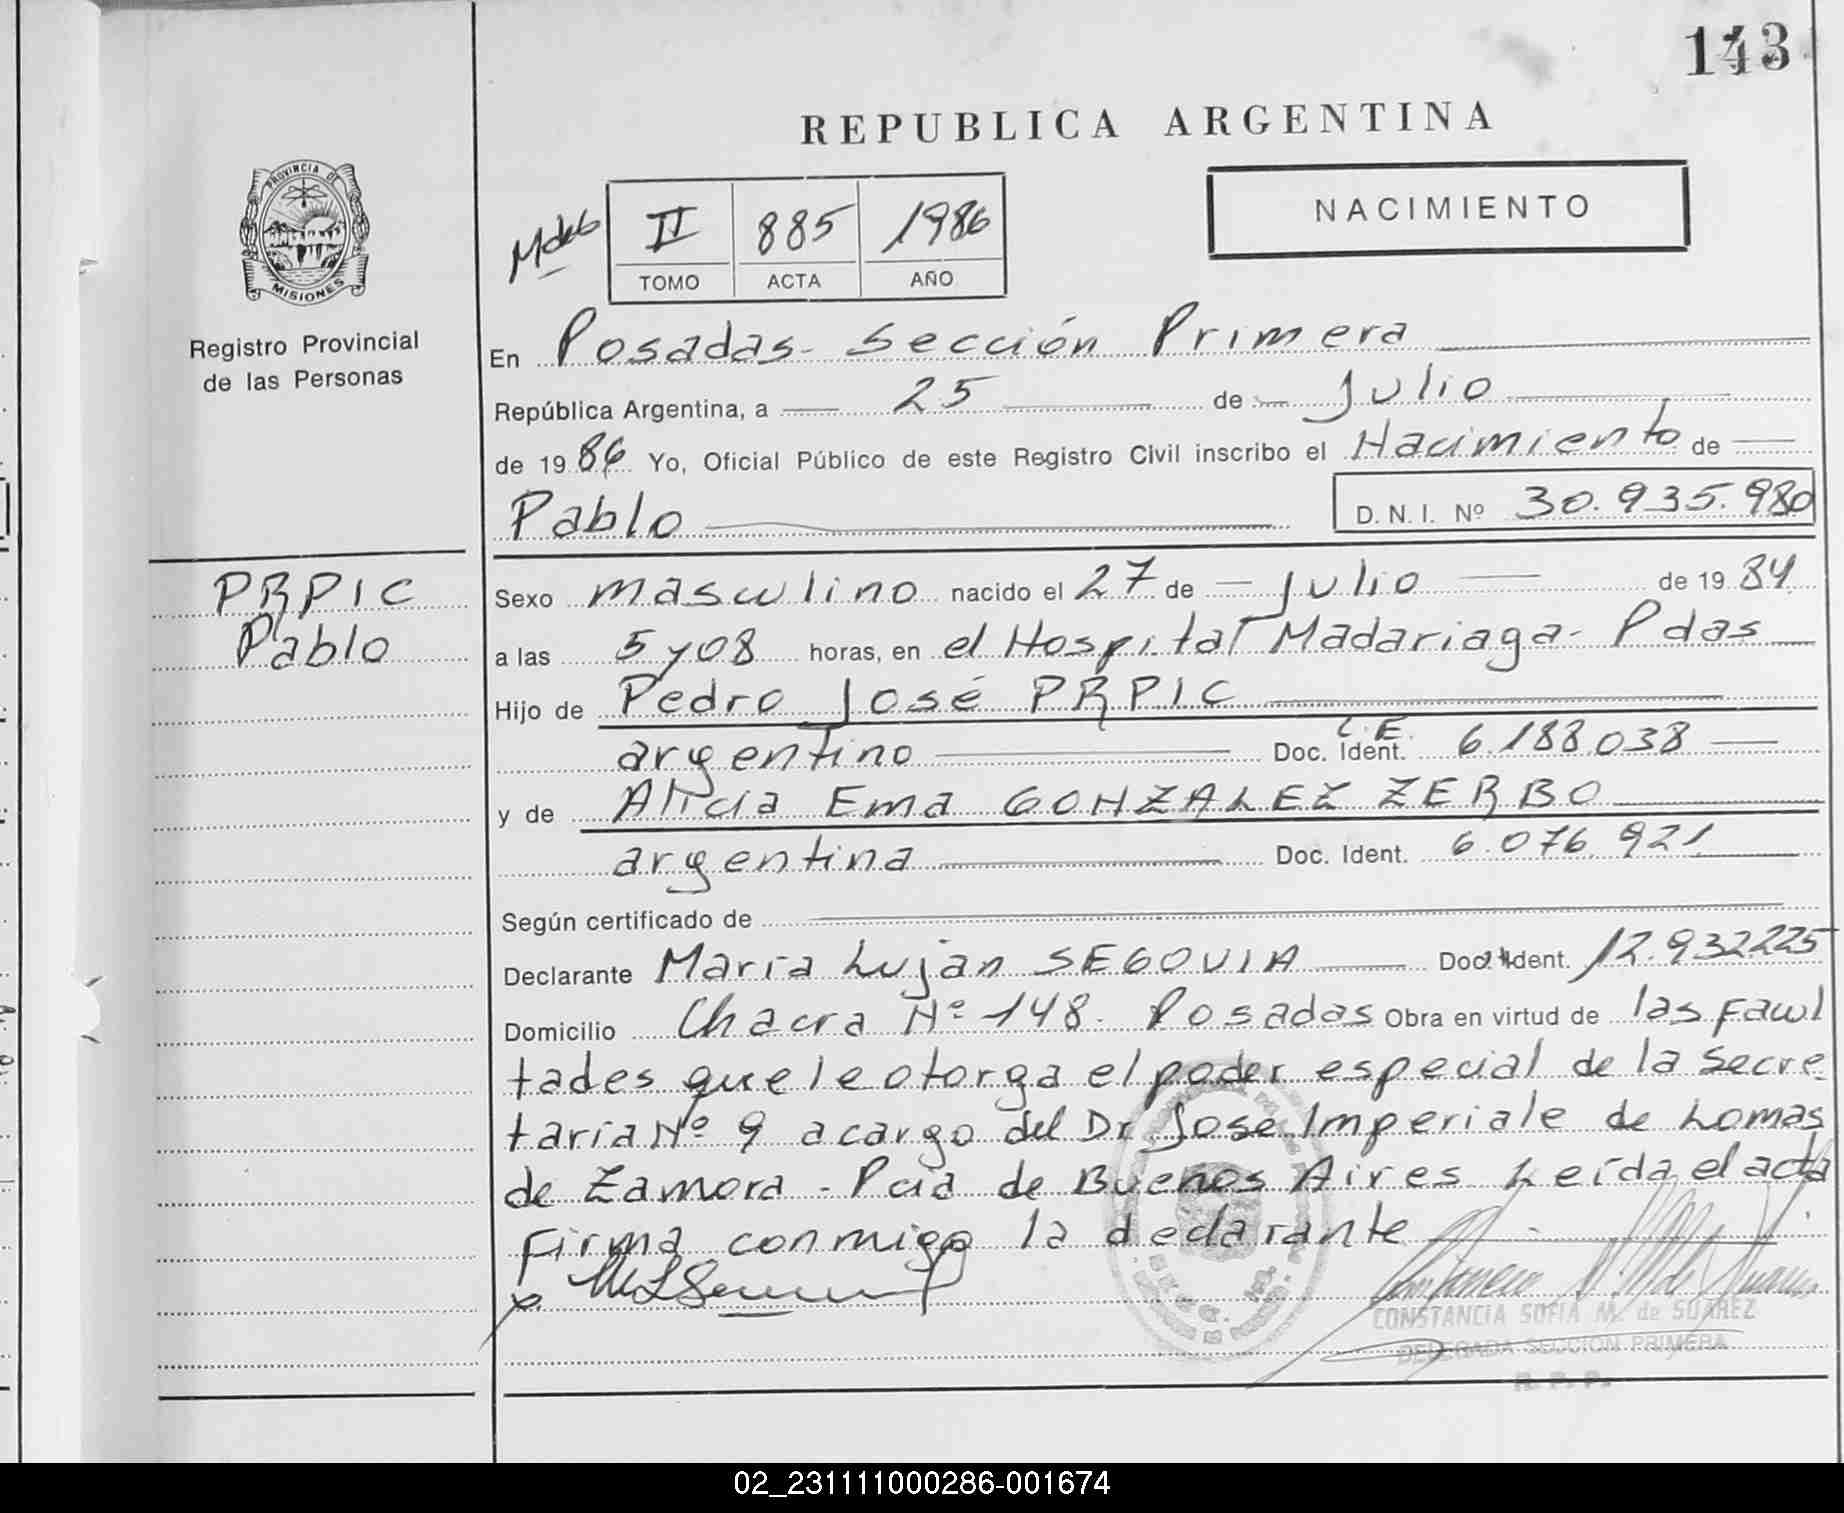 143
REPUBLICA ARGENTINA
PROVINCIA DE
MISIONES
Registro Provincial
de las Personas
II 885 1986
TOMO ACTA AÑO
NACIMIENTO
En Posadas - Sección Primera
República Argentina, a 25 de Julio
de 1986 Yo, Oficial Público de este Registro Civil inscribo el Nacimiento de
Pablo D. N. I. Nº 30.935.980
PRPIC
Pablo
Sexo masculino nacido el 27 de Julio de 1984
a las 5 y 08 horas, en el Hospital Madariaga - Pdas
Hijo de Pedro José PRPIC
argentino L.E. Doc. Ident. 6.188.038
y de Alicia Ema GONZALEZ ZERBO
argentina Doc. Ident. 6.076.921
Según certificado de
Declarante María Luján SEGOVIA Doc. Ident. 12.932.225
Domicilio Chacra Nº 148. Posadas Obra en virtud de las facul
tades que le otorga el poder especial de la Secre-
taría Nº 9 a cargo del Dr. Jose Imperiale de Lomas
de Zamora - Pcia de Buenos Aires Leída el acta
firma conmigo la declarante
CONSTANCIA SOFIA M. de SUAREZ
DELEGADA SECCION PRIMERA
R. P. P.
02_231111000286-001674